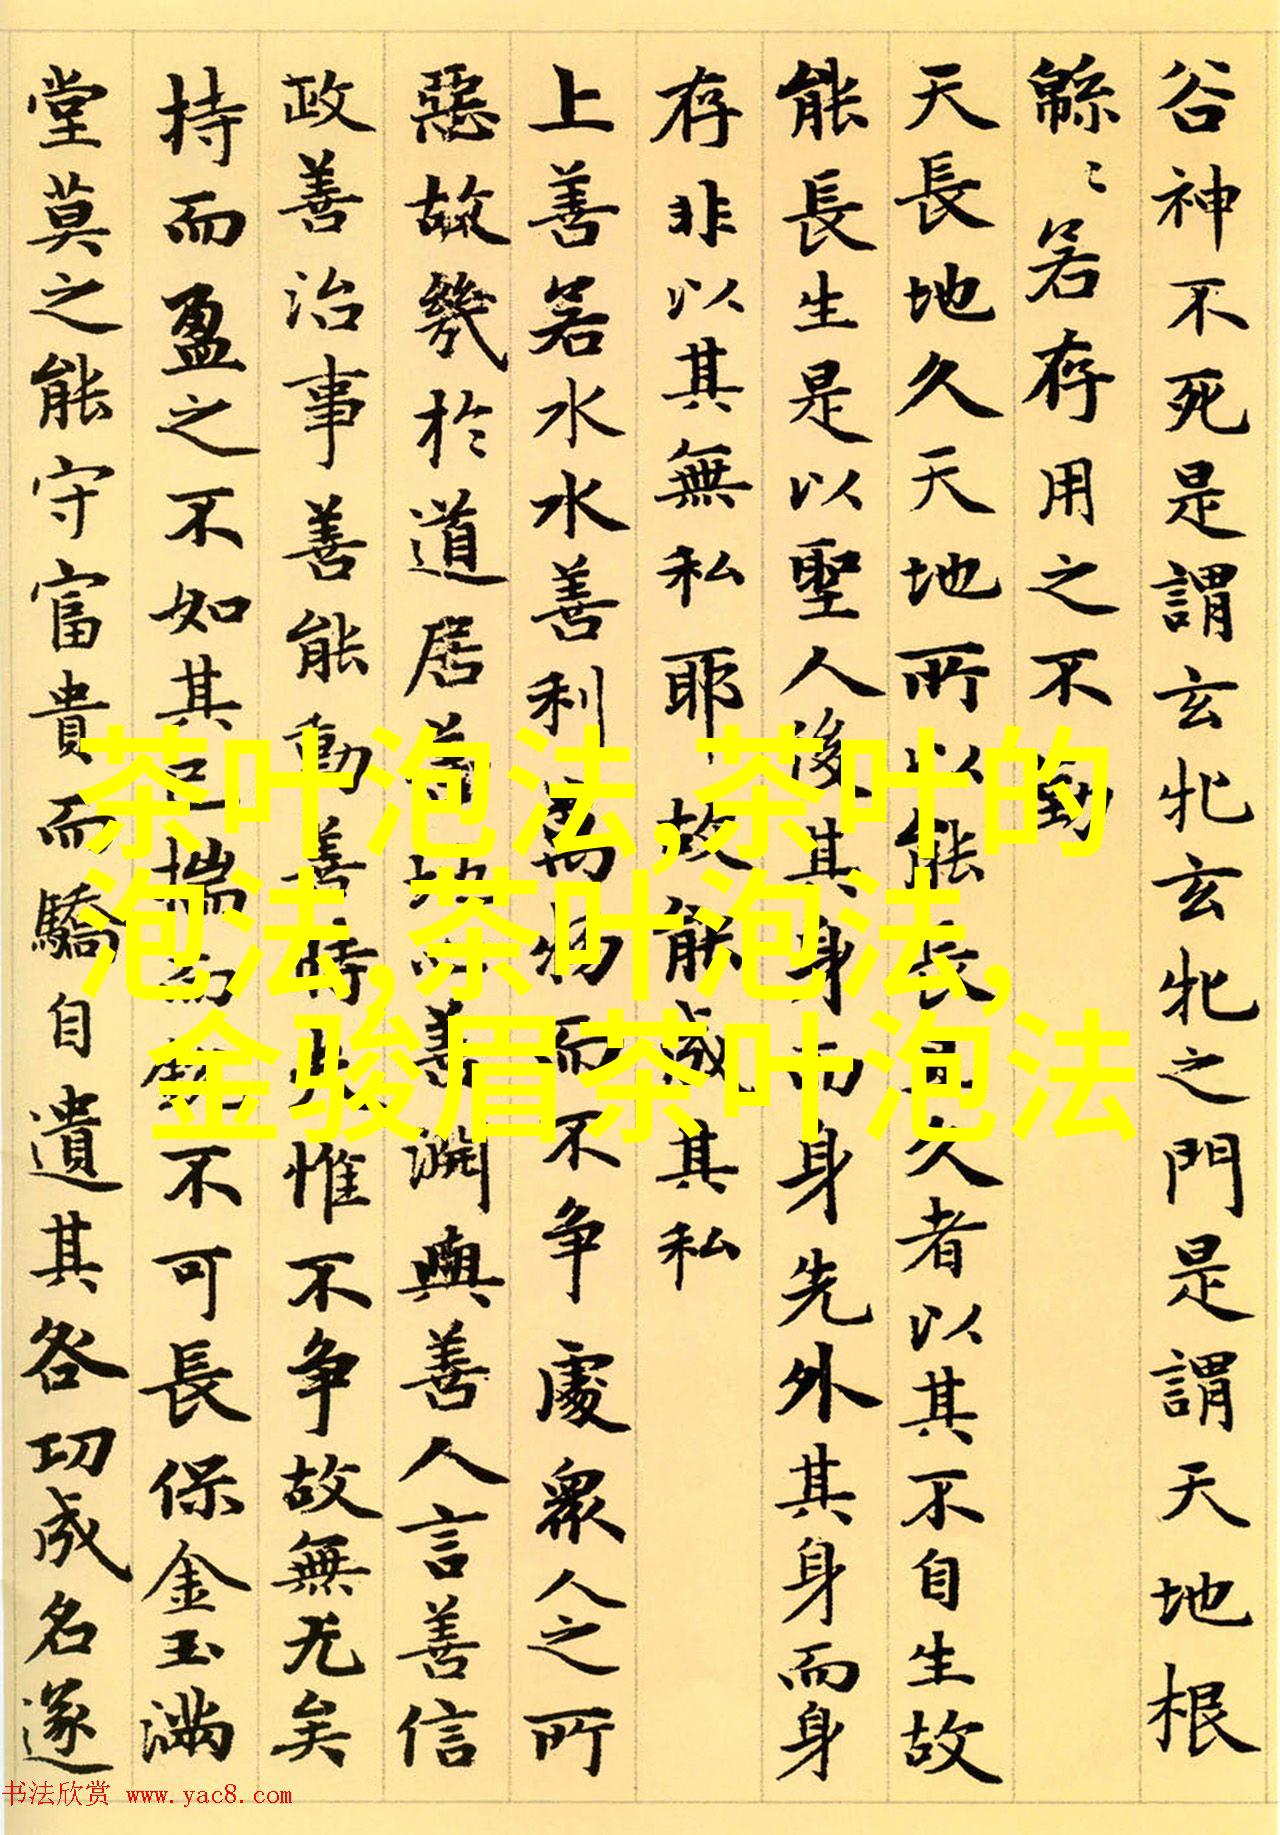 谷神不死是謂玄牝玄牝之門是謂天地根
緜〻若存用之不勤
天長地久天地所以能長且久者以其不自生故
能長生是以聖人後其身而身先外其身而身
存非以其無私耶故能成其私
上善若水水善利萬物而不争處衆人之所
惡故幾於道居善地心善渊與善人言善信
政善治事善能動善時夫惟不争故無尤矣
持而盈之不如其已揣而銳不可長保金玉滿
堂莫之能守富貴而驕自遺其咎功成名遂
茶叶泡法,茶叶的
泡法,茶叶泡法,
金骏眉茶叶泡法
书法欣赏 www.yac8.com